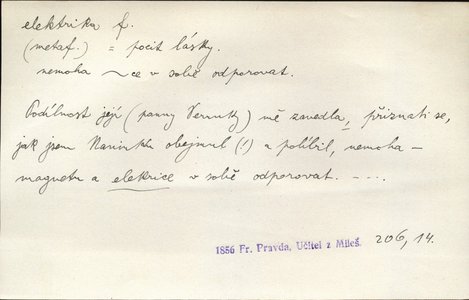 elektrika f.
(metaf.) = pocit lásky.
nemoha ~ce v sobě odporovat.
Podílnost její (panny Verunky) mě zavedla, přiznati se,
jak jsem Naninku obejmul (!) a políbil, nemoha –
magnetu a elekrice v sobě odporovat. – . . .
1856 Fr. Pravda, Učitel z Mileš. 206, 14.